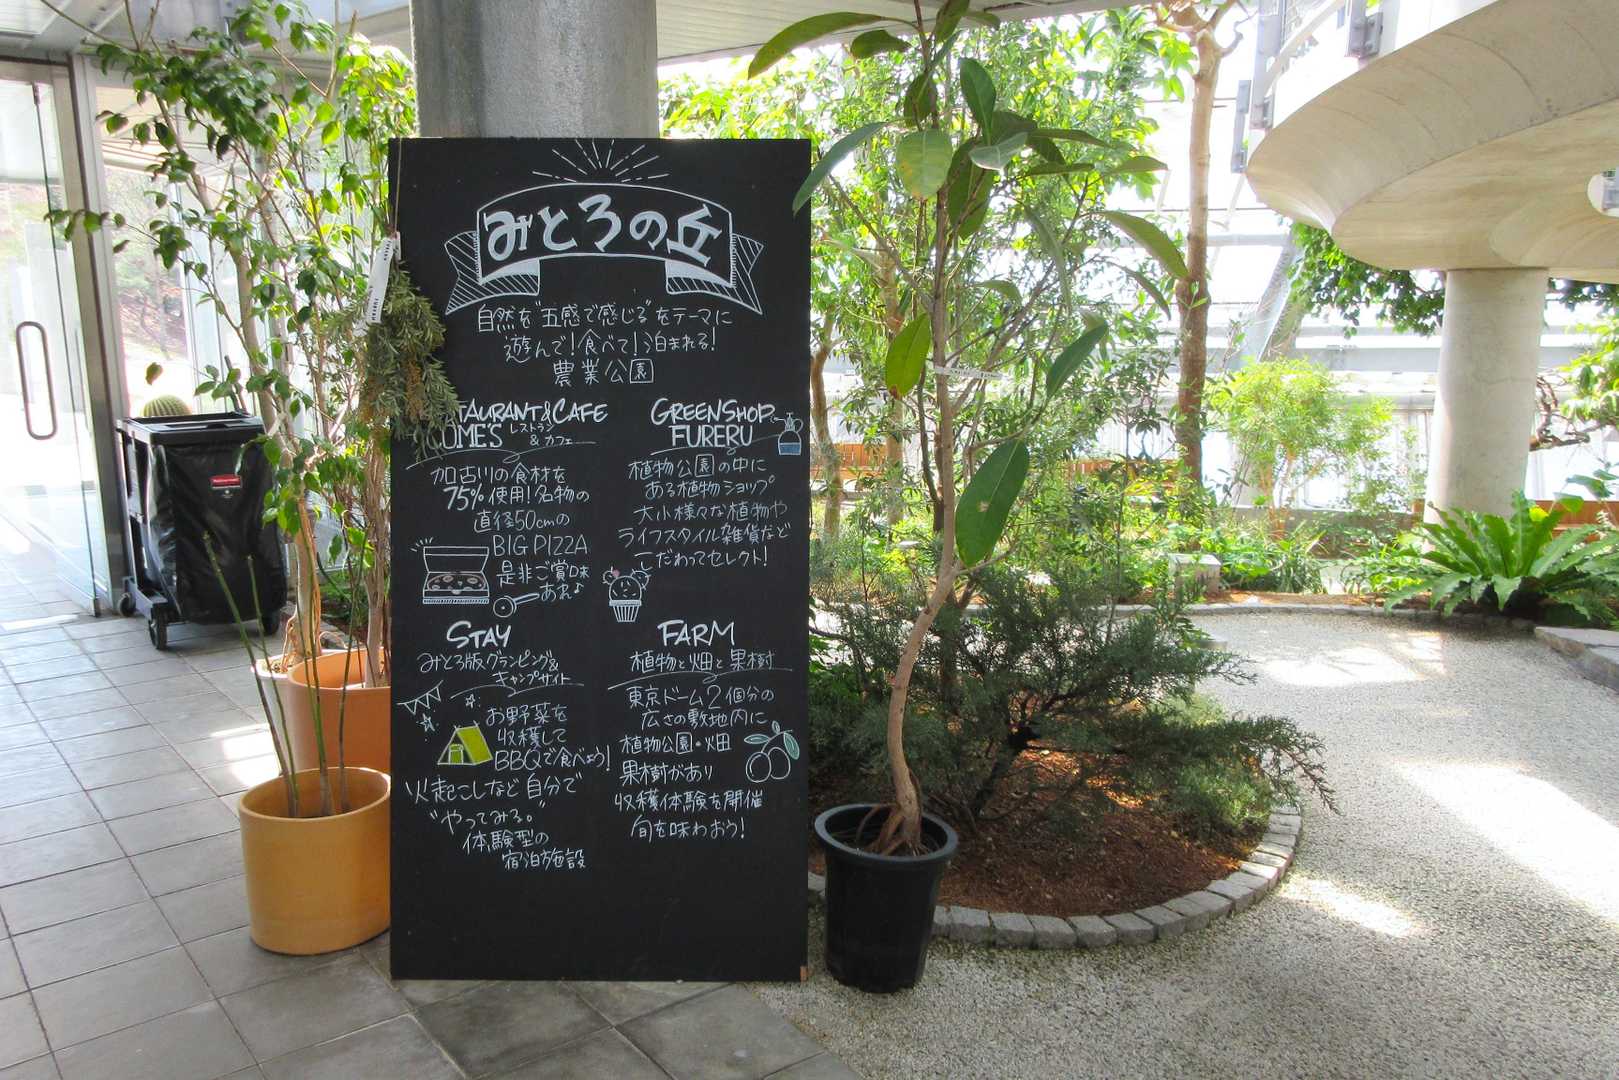 みとろの丘
自然を"五感で感じる"をテーマに
遊んで!食べて!泊まれる!
農業公園
TAURANT&CAFE
OME'S レストラン
& カフェ
加古川の食材を
75%使用!名物の
直径50cmの
BIG PIZZA
是非ご賞味
あれ♪
GREENSHOP
FURERU
植物公園の中に
ある植物ショップ
大小様々な植物や
ライフスタイル雑貨など
こだわってセレクト!
STAY
みとろ版グランピング&
キャンプサイト
お野菜を
収穫して
BBQで食べよう!
火起こしなど自分で
"やってみる。"
体験型の
宿泊施設
FARM
植物と畑と果樹
東京ドーム2個分の
広さの敷地内に
植物公園・畑
果樹があり
収穫体験を開催
旬を味わおう!